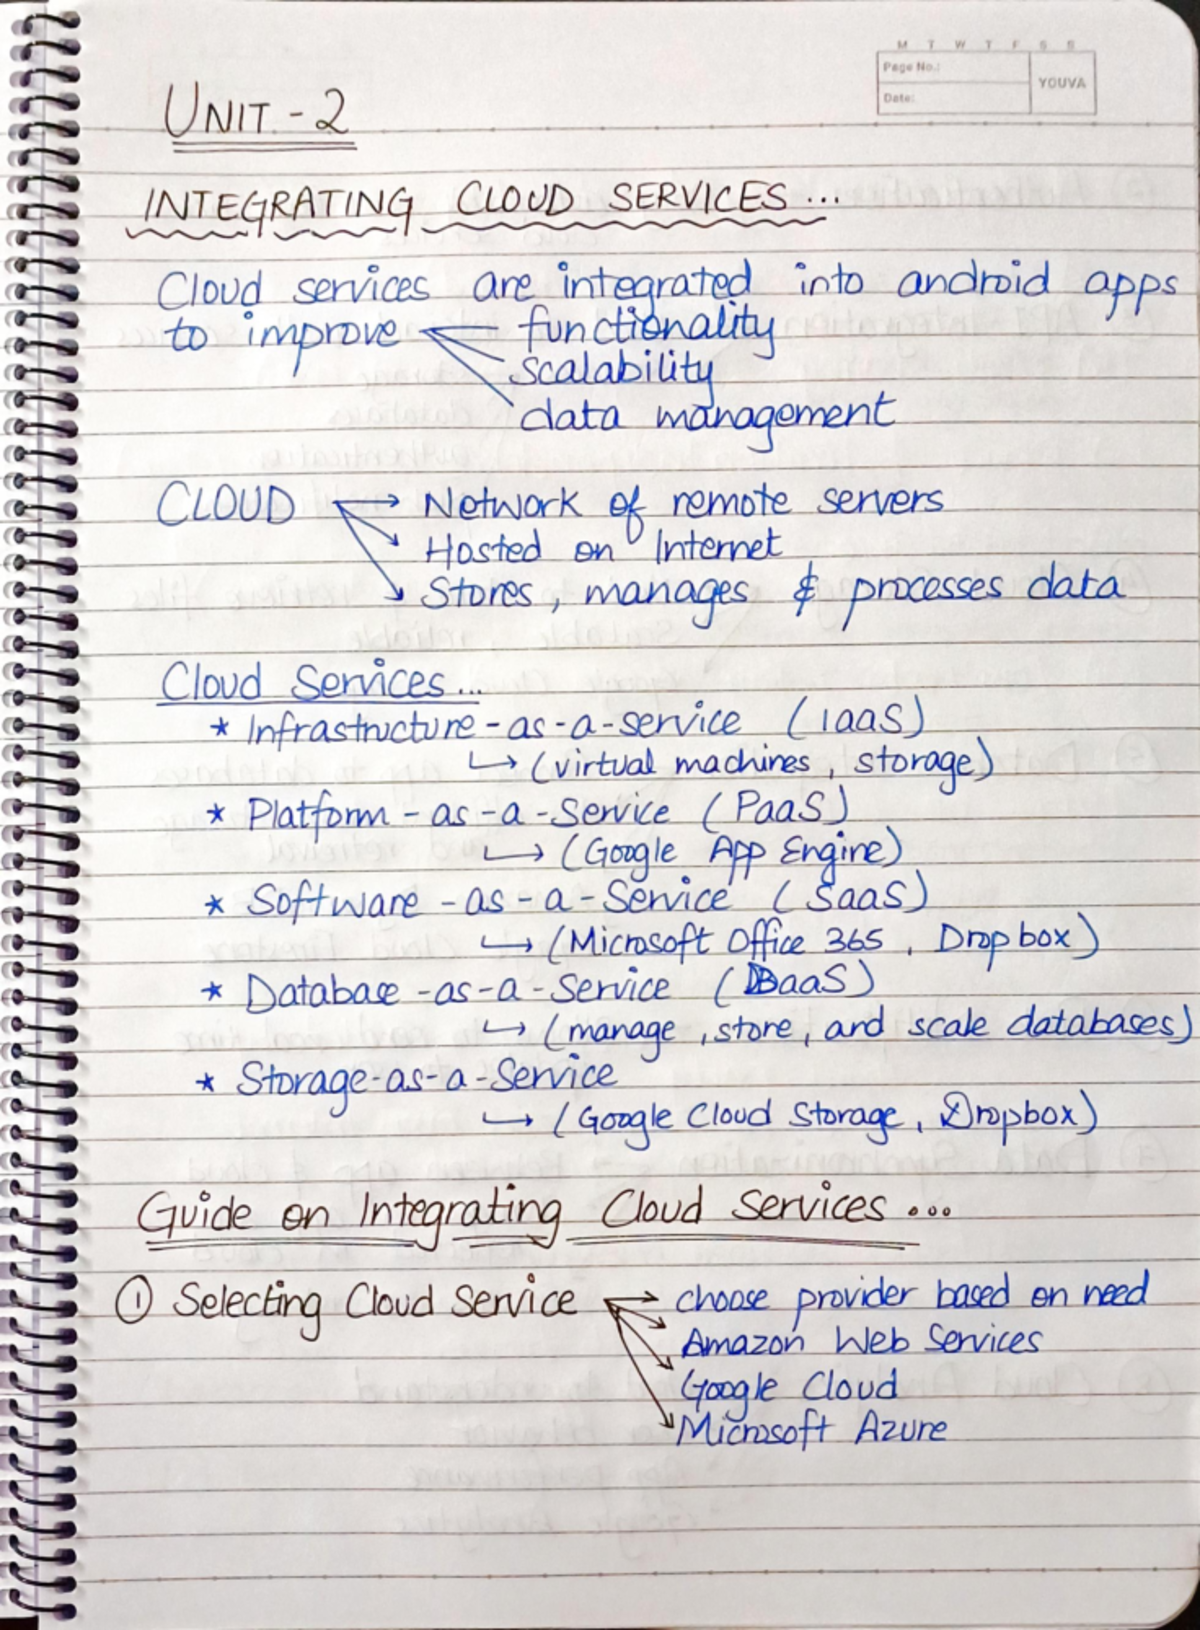 M T W T F S S
Page No.:
YOUVA
Date:
UNIT - 2
INTEGRATING CLOUD SERVICES...
Cloud services are integrated into android apps
to improve functionality
scalability
data management
CLOUD → Network of remote servers
Hosted on Internet
Stores, manages & processes data
Cloud Services...
* Infrastructure-as-a-service (IaaS)
↳ (virtual machines, storage)
* Platform-as-a-Service (PaaS)
↳ (Google App Engine)
* Software-as-a-Service (SaaS)
↳ (Microsoft Office 365, Dropbox)
* Database-as-a-Service (DBaaS)
↳ (manage, store, and scale databases)
* Storage-as-a-Service
↳ (Google Cloud Storage, Dropbox)
Guide on Integrating Cloud Services...
① Selecting Cloud Service → choose provider based on need
Amazon Web Services
Google Cloud
Microsoft Azure